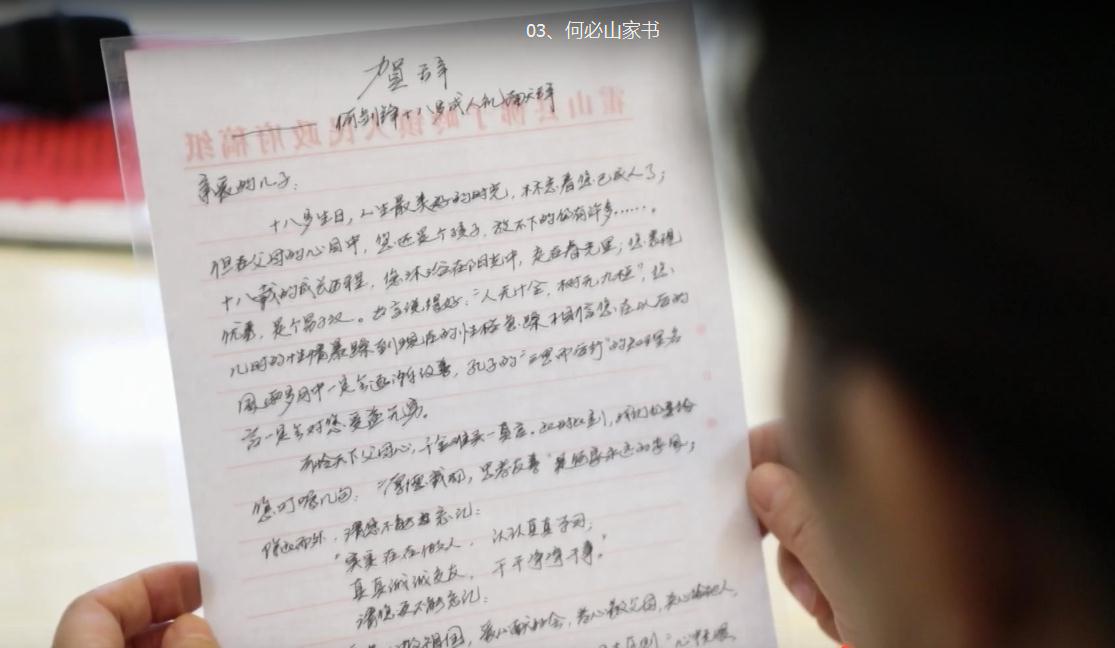 03、何必山家书
贺辞
何剑锋十八岁成人礼贺辞
霍山县佛子岭镇人民政府稿纸
亲爱的儿子：
十八岁生日，人生最美好的时光，标志着您已成人了；
但在父母的心目中，您还是个孩子，放不下的仍有许多……。
十八载的成长历程，您沐浴在阳光中，走在春光里；您表现
优秀，是个男子汉。古言说得好：“人无十全，树无九枝”，您
儿时的性情暴躁到现在的性格急躁相信您在以后的
风雨岁月中一定会逐渐改善，孔子的“三思而后行”的至理名
言一定会对您受益无穷。
可怜天下父母心，千金难买一真言。此时此刻，咱们也要给
您叮嘱几句：“厚德载物，忠孝友善”是何家永远的家风；
除此而外，请您不能忘记：
“实实在在做人，认认真真学习；
真真诚诚交友，干干净净干事。”
请您更不能忘记：
祖国，爱心献社会，孝心敬父母，关心给他人，